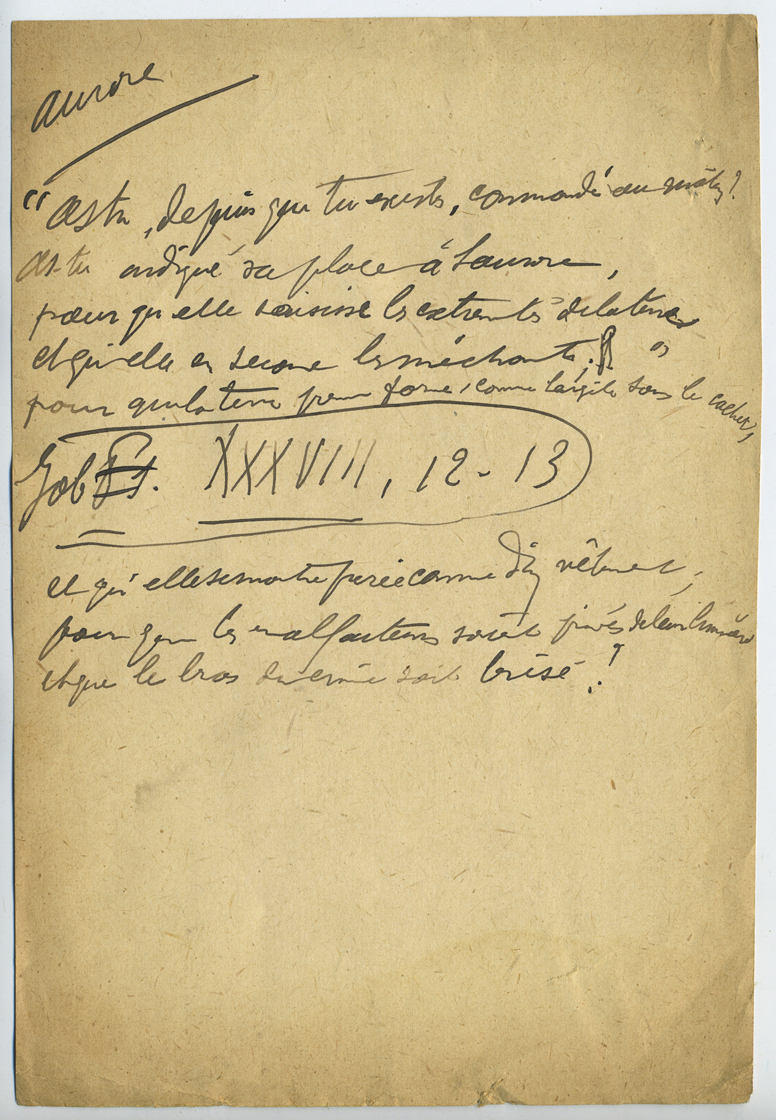 aurore
"As tu, depuis que tu existes, commandé au matin ?
As-tu indiqué sa place à l'aurore,
pour qu'elle saisisse les extremités de la terre
et qu'elle en secoue les méchants ; "
pour que la terre prenne forme, comme l'argile sous le cachet,
Job XXXVIII, 12-13
et qu'elle se montre parée comme d'un vêtement,
pour que les malfaiteurs soient privés de leur lumière
et que le bras du crime soit brisé ?